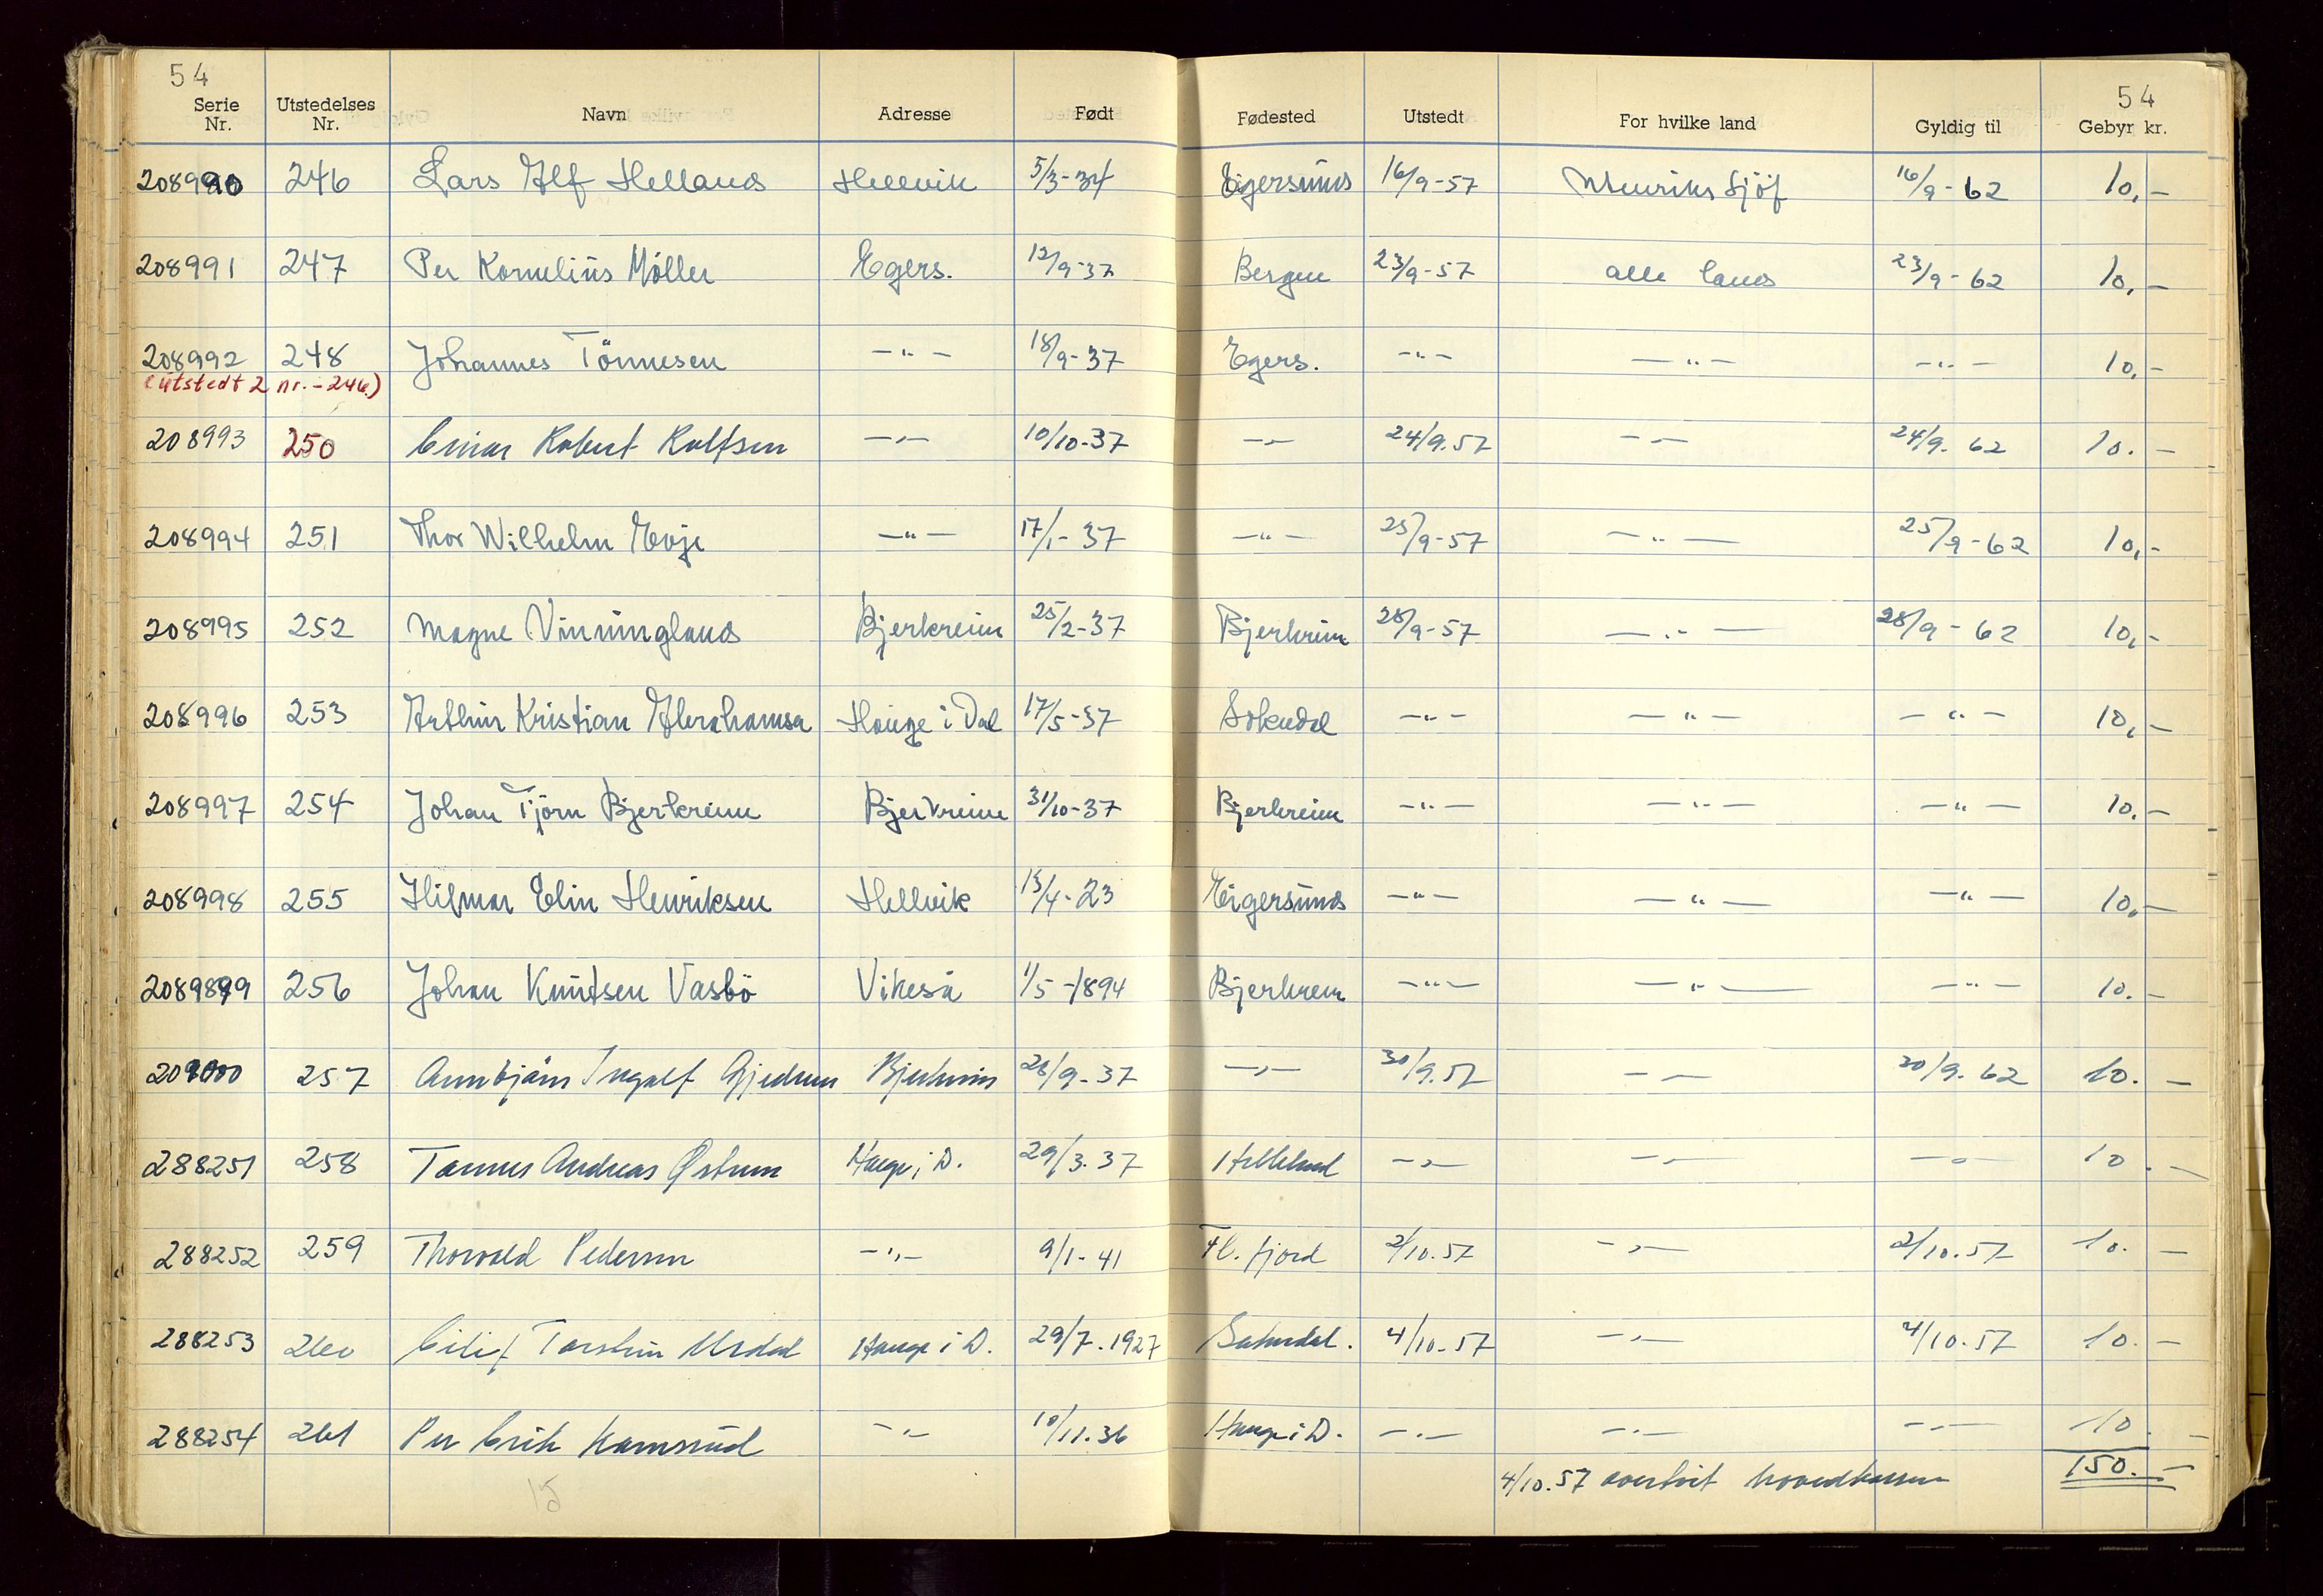 54 54
Serie Nr. Utstedelses Nr. Navn Adresse Født Fødested Utstedt For hvilke land Gyldig til Gebyr kr.
208990 246 Lars Alf Helland Hellvik 5/3-34 Eigersund 16/9-57 16/9-62 10,-
208991 247 Per Kornelius Møller Egers. 12/9-37 Bergen 23/9-57 alle land 23/9-62 10,-
208992 248 Johannes Tönnesen -"- 18/9-37 Egers. -"- -"- -"- 10,-
(utstedt 2 nr. - 246)
208993 250 Einar Robert Rolfsen -"- 10/10-37 -"- 24/9.57 -"- 24/9. 62 10.-
208994 251 Thor Wilhelm Evje -"- 17/1-37 -"- 25/9-57 -"- 25/9-62 10,-
208995 252 Magne Vinningland Bjerkreim 25/2-37 Bjerkreim 28/9-57 -"- 28/9-62 10,-
208996 253 Arthur Kristian Abrahamsen Hauge i Dal 17/5-37 Sokndal -"- -"- -"- 10,-
208997 254 Johan Tjörn Bjerkreim Bjerkreim 31/10-37 Bjerkreim -"- -"- -"- 10.-
208998 255 Hilmar Elin Henriksen Hellvik 15/4-23 Eigersund -"- -"- -"- 10,-
2089899 256 Johan Knutsen Vasbö Vikeså 1/5-1894 Bjerkreim -"- -"- -"- 10.-
209000 257 Annbjörn Ingolf Gjedrem Bjerkreim 28/9-37 -"- 30/9.57 -"- 30/9. 62 10.-
288251 258 Tønnes Andreas Østrem Hauge i D. 29/3.37 Helleland -"- -"- -"- 10.-
288252 259 Thorvald Pedersen -"- 9/1-41 Fl. fjord 2/10.57 -"- 2/10.57 10.-
288253 260 Eilif Torstein Urdal Hauge i D. 29/7.1927 Sokndal. 4/10.57 -"- 4/10.57 10.-
288254 261 Per Erik Hamsrud -"- 10/11.36 Hauge i D. -"- -"- -"- 10.-
15 4/10.57 overført hovedkassen 150.-